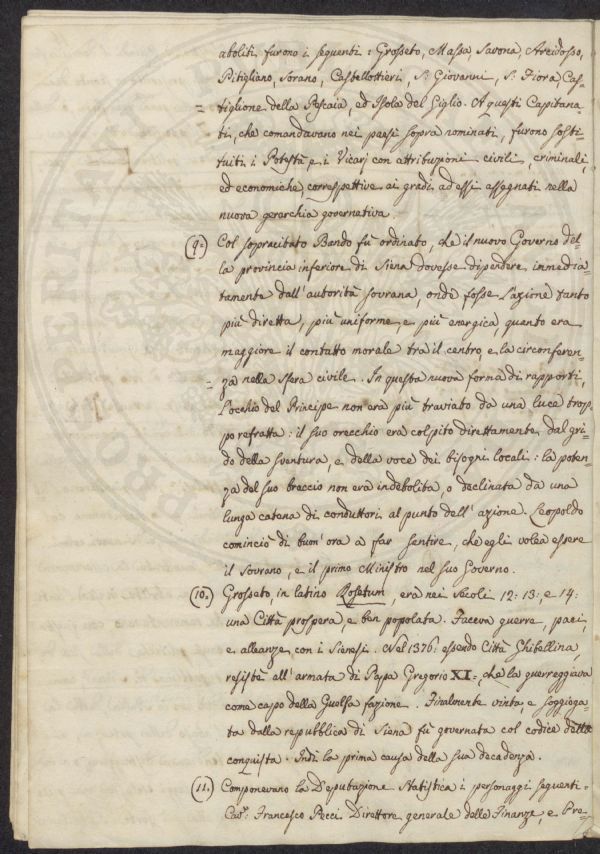 aboliti furono i seguenti: Grosseto, Massa, Savona, Arcidosso,
Pitigliano, Sorano, Castellottieri, S. Giovanni, S. Fiora, Cas-
= tiglione della Pescaia, ed Isola del Giglio. A questi Capitana-
ti, che comandavano nei paesi sopra nominati, furono sosti-
tuiti i Potestà, e i Vicarj con attribuzioni civili, criminali,
ed economiche, correspettive ai gradi ad essi assegnati nella
nuova gerarchia governativa.
(9.) Col sopracitato Bando fù ordinato, che il nuovo Governo del-
la provincia inferiore di Siena dovesse dipendere immedia-
tamente dall'autorità sovrana, onde fosse l'azione tanto
più diretta, più uniforme, e più energica, quanto era
maggiore il contatto morale tra il centro, e la circonferen-
= za nella sfera civile. In questa nuova forma di rapporti,
l'occhio del Principe non era più traviato da una luce trop-
po refratta: il suo orecchio era colpito direttamente dal gri-
do della sventura, e della voce dei bisogni locali: la poten-
za del suo braccio non era indebolita, o declinata da una
lunga catena di conduttori al punto dell'azione. Leopoldo
cominciò di buon'ora a far sentire, che egli volea essere
il Sovrano, e il primo Ministro nel suo Governo.
(10.) Grosseto, in latino Rosetum, era nei Secoli 12: 13: e 14:
una Città prospera, e ben popolata. Faceva guerre, paci,
e alleanze con i Sienesi. Nel 1376: essendo Città Ghibellina,
resistè all'armata di Papa Gregorio XI:, che la guerreggiava
come capo della Guelfa fazione. Finalmente vinta, e soggioga-
ta dalla repubblica di Siena fù governata col codice della
conquista. Indi la prima causa della sua decadenza.
(11.) Componevano la Deputazione Statistica i personaggi seguenti.
Cav. Francesco Pecci Direttore generale delle Finanze, e Pre-